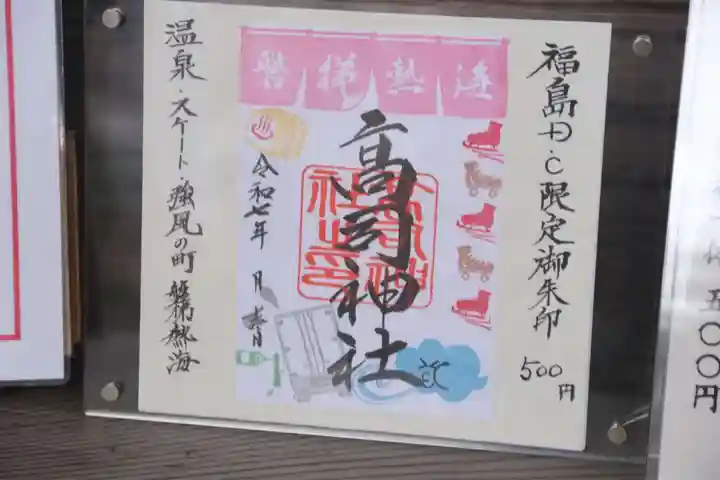 福島D・C限定御朱印
500円
磐梯熱海
高司神社
令和七年 月 吉日
温泉・スケート・強風の町 磐梯熱海
五〇〇円